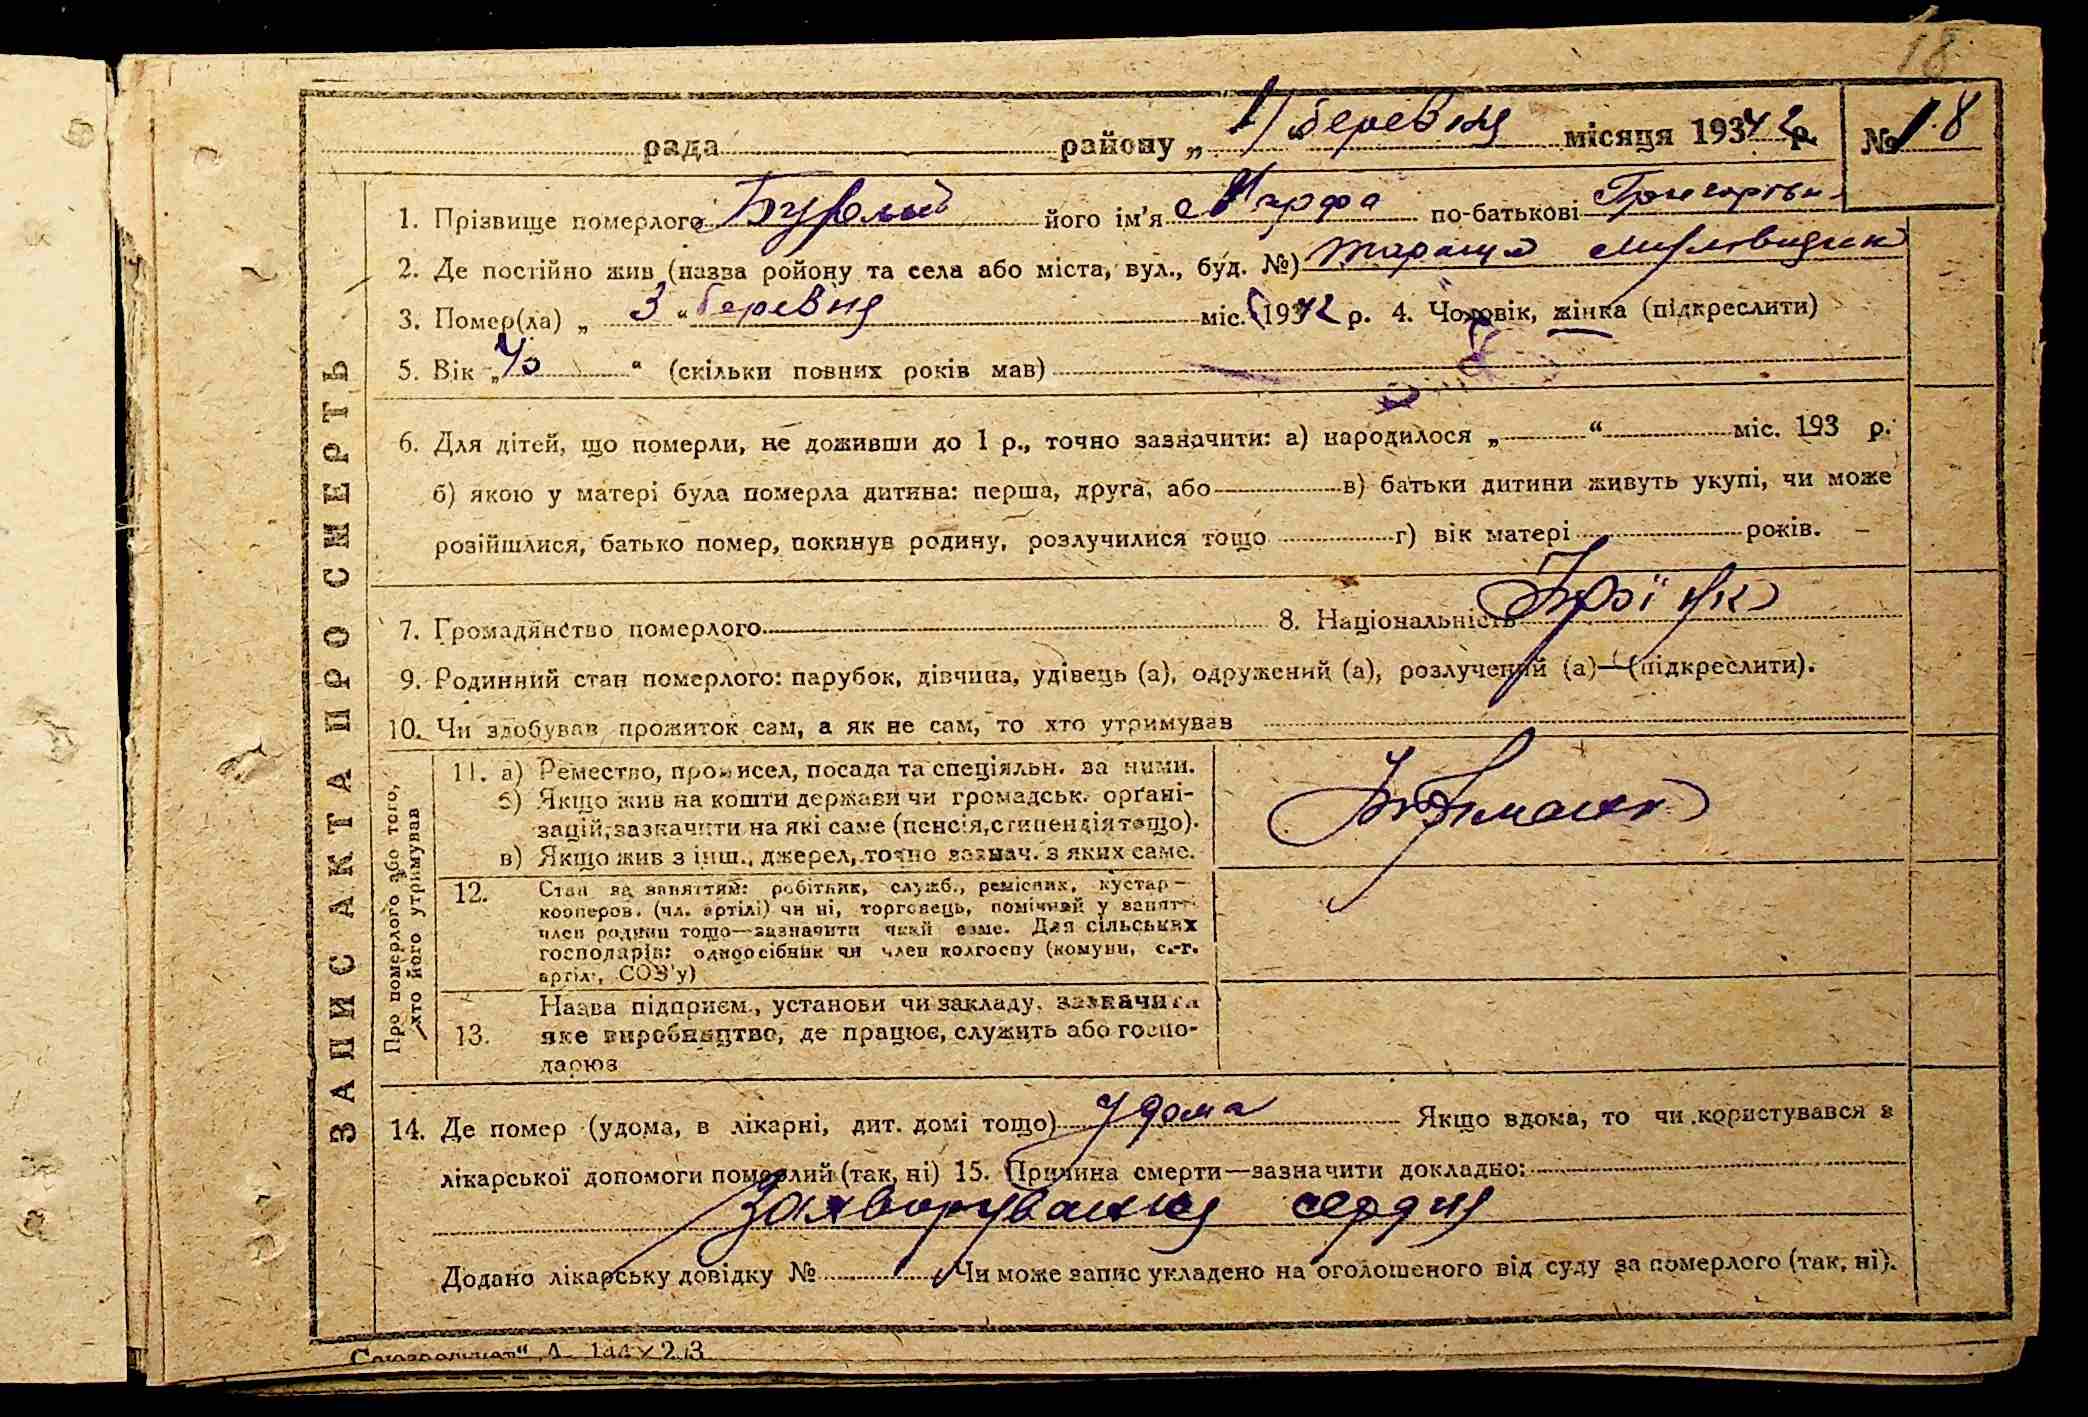 18
рада району „ 4 “ березня місяця 1942 р. № 18
1. Прізвище померлого його ім'я Марфа по-батькові
2. Де постійно жив (назва ройону та села або міста, вул., буд. №) Тараща
3. Помер(ла) „ 3 “ березня міс. 1942 р. 4. Чоловік, жінка (підкреслити)
5. Вік „ “ (скільки повних років мав)
6. Для дітей, що померли, не доживши до 1 р., точно зазначити: а) народилося „ “ міс. 193 р.
б) якою у матері була померла дитина: перша, друга, або в) батьки дитини живуть укупі, чи може
розійшлися, батько помер, покинув родину, розлучилися тощо г) вік матері років.
7. Громадянство померлого 8. Національність
9. Родинний стан померлого: парубок, дівчина, удівець (а), одружений (а), розлучений (а)—(підкреслити).
10. Чи здобував прожиток сам, а як не сам, то хто утримував
11. а) Ремество, промисел, посада та спеціяльн. за ними.
б) Якщо жив на кошти держави чи громадськ. орґані-
зацій, зазначити на які саме (пенсія, стипендія тощо).
в) Якщо жив з інш., джерел, точно зазнач. з яких саме.
12. Стан за заняттям: робітник, служб., ремісник, кустар—
кооперов. (чл. артілі) чи ні, торговець, помічний у занятт.
член родини тощо—зазначити який саме. Для сільських
господарів: одноосібник чи член колгоспу (комуни, с.-г.
артіл., СОЗ'у)
13. Назва підприєм., установи чи закладу, зазначити
яке виробництво, де працює, служить або госпо-
дарює
Про померлого або того,
хто його утримував
ЗАПИС АКТА ПРО СМЕРТЬ
14. Де помер (удома, в лікарні, дит. домі тощо) удома Якщо вдома, то чи користувався з
лікарської допомоги померлий (так, ні) 15. Причина смерти—зазначити докладно:
Захворування серця
Додано лікарську довідку № Чи може запис укладено на оголошеного від суду за померлого (так, ні).